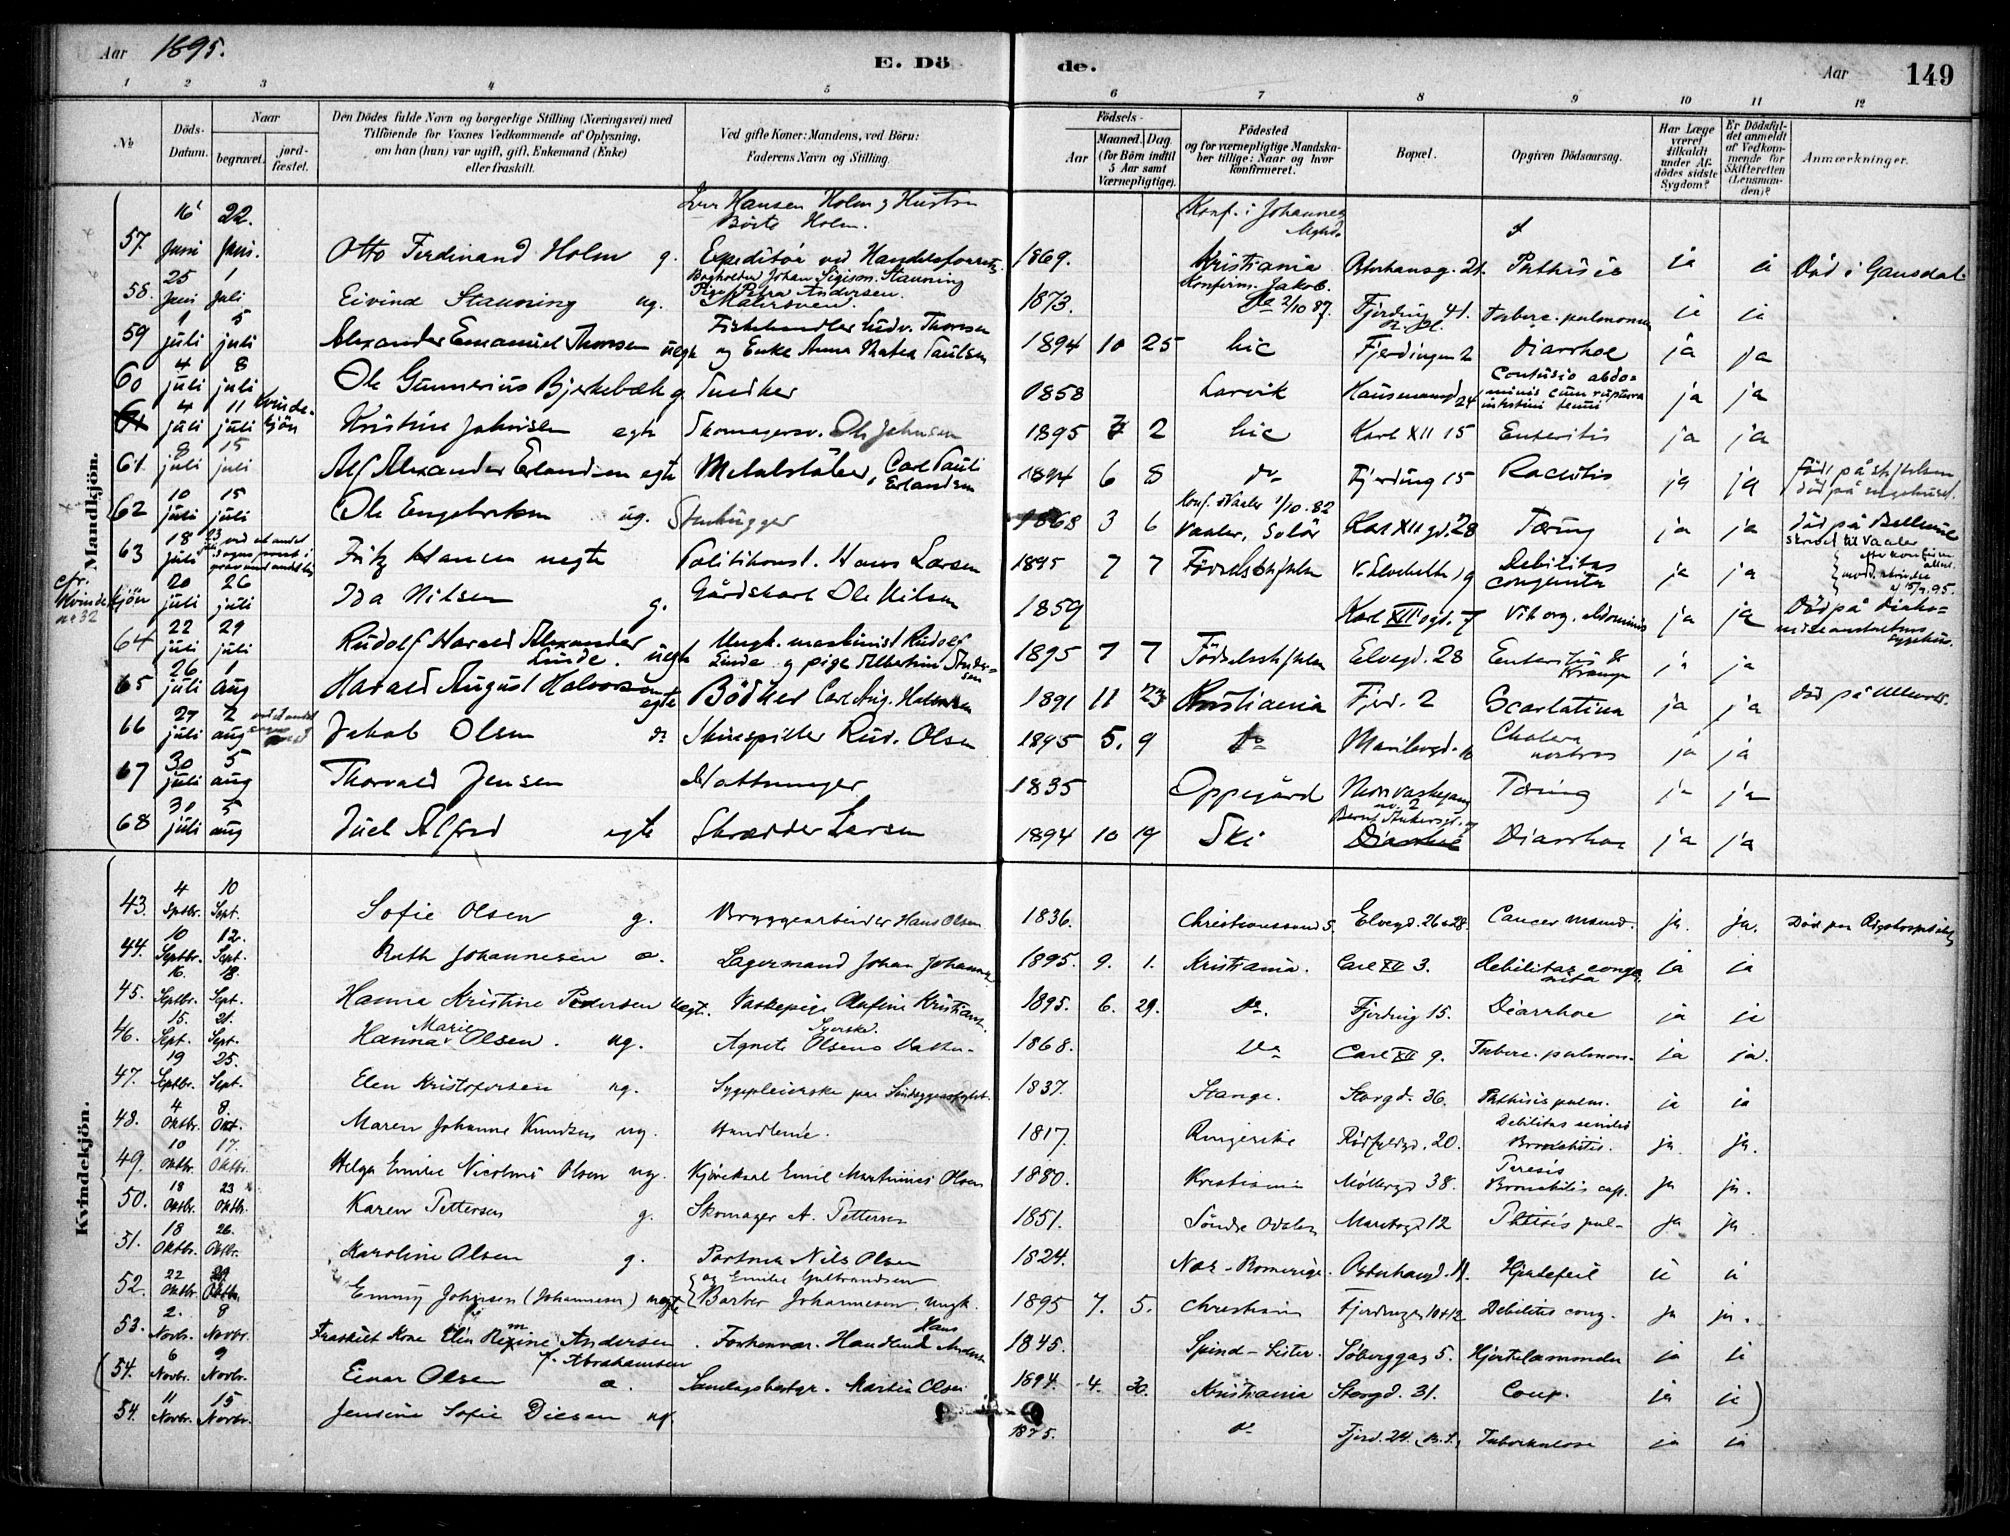 Aar 1895.
E. Dö
de.
Aar
149
1 2 3 4 5 6 7 8 9 10 11 12
№
Döds-Datum.
Naar
begravet.
jord-fæstet.
Den Dödes fulde Navn og borgerlige Stilling (Næringsvei) med
Tilföiende for Voxnes Vedkommende af Oplysning,
om han (hun) var ugift, gift, Enkemand (Enke)
eller fraskilt.
Ved gifte Koner: Mandens, ved Börn:
Faderens Navn og Stilling.
Födsels-
Aar
Maaned. Dag.
(for Börn indtil
5 Aar samt
Værnepligtige).
Födested
og for værnepligtige Mandska-
ber tillige: Naar og hvor
konfirmeret.
Bopæl.
Opgiven Dödsaarsag.
Har Læge
været
tilkaldt
under Af-
dödes sidste
Sygdom?
Er Dödsfal-
det anmeldt
af Vedkom-
mende for
Skifteretten
(Lensman-
den)?
Anmærkninger.
Mandkjön.
Hansen Holm & Hustru
Holm.
Konf. i Johannes
57. 16 Juni 22. Juni. Otto Ferdinand Holm g. Expeditör ved 1869. Kristiania Osterhausg. 21. Phthisis ja ja Död i Gausdal
Bogholder Johan Stauning
Pige Petra Andersen Konfirm. Jakob.
58. 25 Juni 1 Juli Eivind Stauning ug. 1873. Do 2/10 87. Fjerding 41. Tuberc. pulmonum ja ja
59 1 juli 5 juli Alexander Emanuel Thomsen uegte Fiskehandler Ludv. Thomsen
og Enke Anna Paulsen 1894 10 25 hic Fjerdingen 2 Diarrhoe ja ja
60 4 juli 8 juli Ole Gunnerius Bjerkebæk g. Snedker 1858 Larvik Hausmannsgd 24 Contusio abdo-
minis cum ruptura
intestini tenui ja ja
61 4 juli 11 juli Kvinde-
kjön Kristine Johnsen egte Skomagersv. Ole Johnsen 1895 7 2 hic Karl XII 15 Enteritis ja ja
61. 9 juli 15 juli Alf Alexander Erlandsen egte Metalstöber, Carl Pauli
Erlandsen 1894 6 8 do Fjerding 15 Rachitis ja ja Född på stiftelsen
död på sygehuset.
Konf. i Vaaler 1/10 82
62 10 juli 15 juli Ole Engebretsen ug. Stenhugger 1868 3 6 Vaaler, Solör Karl XII gd. 28 Tæring ja ja Död på Bellevue
63 18 juli 23 Fritz Hansen uegte Politikonst. Hans Larsen 1895 7 7 Födselsstiftelsen V. Elvebakke 19 Debilitas
congenita ja ja
cfr.
Kvindekjön
no 32
20 juli 26 juli Ida Nilsen g. Gårdskarl Ole Nilsen 1859 Karl XII gd. 7 ja ja Död på Diako-
64 22 juli 29 juli Rudolf Harald Alexander
Linde. uegte Ungk. maskinist Rudolf
Linde og pige Albertine Ander-
sen 1895 7 7 Födselsstiftelsen Elvegd. 28 Enteritis &
Krampe ja ja
65 26 juli 1 aug Harald August Halvorsen egte Bödker Carl Aug. Halvorsen 1891 11 23 Kristiania Fjerd. 2 Scarlatina ja ja Död på Ullevold.
66 27 juli 2 aug Jakob Olsen do Skuespiller Rud. Olsen 1895 5. 9 do Maribogd. 16 Cholera
nostras ja ja
67 30 juli 5 aug Thorvald Jensen Natmager 1835 Oppegård no. 2 Tæring ja ja
68 30 juli 5 aug Juel Alfred egte Skrædder Larsen 1894 10 19 Ski Bernt Ankersgd. Diarrhoe ja ja
Kvindekjön.
43. 4 Septbr. 10 Sept. Sofie Olsen g. Bryggearbeider Hans Olsen 1836. Christianssund S. Elvegd. 26 & 28. Cancer mamd. ja. ja. Död paa Rigshospitalet
44. 10 Septbr. 12. Sept. Ruth Johannesen æ. Lagermand Johan Johannes 1895. 9. 1. Kristiania. Carl XII 3. Debilitas conge-
nita ja ja
45. 16. Septbr. 18. Sept. Hanna Kristine Pedersen uegt. Vaskepige Kristians. 1895. 6. 29. Do. Fjerding 15. Diarrhoe ja ja
46. 15. Sept. 21. Sept. Hanna Marie Olsen. ug. Syerske.
Agnete Olsens Datter 1868. Do Carl XII 9. Tuberc. pulmon. ja ja.
47. 19 Septbr. 25. Sept. Elen Kristofersen ug. Sygepleierske paa 1837. Stange. Storgd. 36. Phthisis pulm. ja ja
48. 4 Oktbr. 8 Okt. Maren Johanne Knudsen ug. Handlende. 1817. Ringerike Rödfyldgd. 20. Debilitas senilis
Bronchitis. ja ja.
49. 10 Oktbr. 17. Oktbr. Helga Emilie Nicoline Olsen ug. Kjörekarl Emil Martinius Olsen 1880. Kristiania Möllergd 38. Paresis
Bronchitis cap. ja ja.
50. 18 Oktbr. 23 Oktbr. Karen Pettersen g. Skomager A. Pettersen 1851. Söndre Odalen Maribogd. 12 Phtisis pul- ja ja
51. 18 Oktbr. 26. Oktbr. Karoline Olsen g. Portner Nils Olsen 1824. Næs - Romerige. Osterhausgd. 11. Hjertefeil ja ja
52. 22 Oktbr. 29 Oktbr. Emmy Johnsen (Johannesen) uegte og Emilie Gulbrandsen
Barber Johannesen ungk. 1895 7. 5. Christiania Fjerdingen 10 & 12 Debilitas cong. ja ja.
53. 2. Novbr. 8 Novbr. Fraskilt Kone Elen Regine Andersen
f. Abrahamsen Forhenvær. Handlende Hans Anders. 1845. Spind - Lister. Söberggas 5. Hjertelammelse ja ja
(54. 6 Novbr. 9 Novbr. Einar Olsen æ. Martin Olsen 1894. 4. 30. Kristiania Storgd. 31. Coup. ja ja)
54. 11 Novbr. 15 Novbr. Jensine Sofie Diesen ug. 1875. do Fjerd. 24. Tuberkulose ja ja